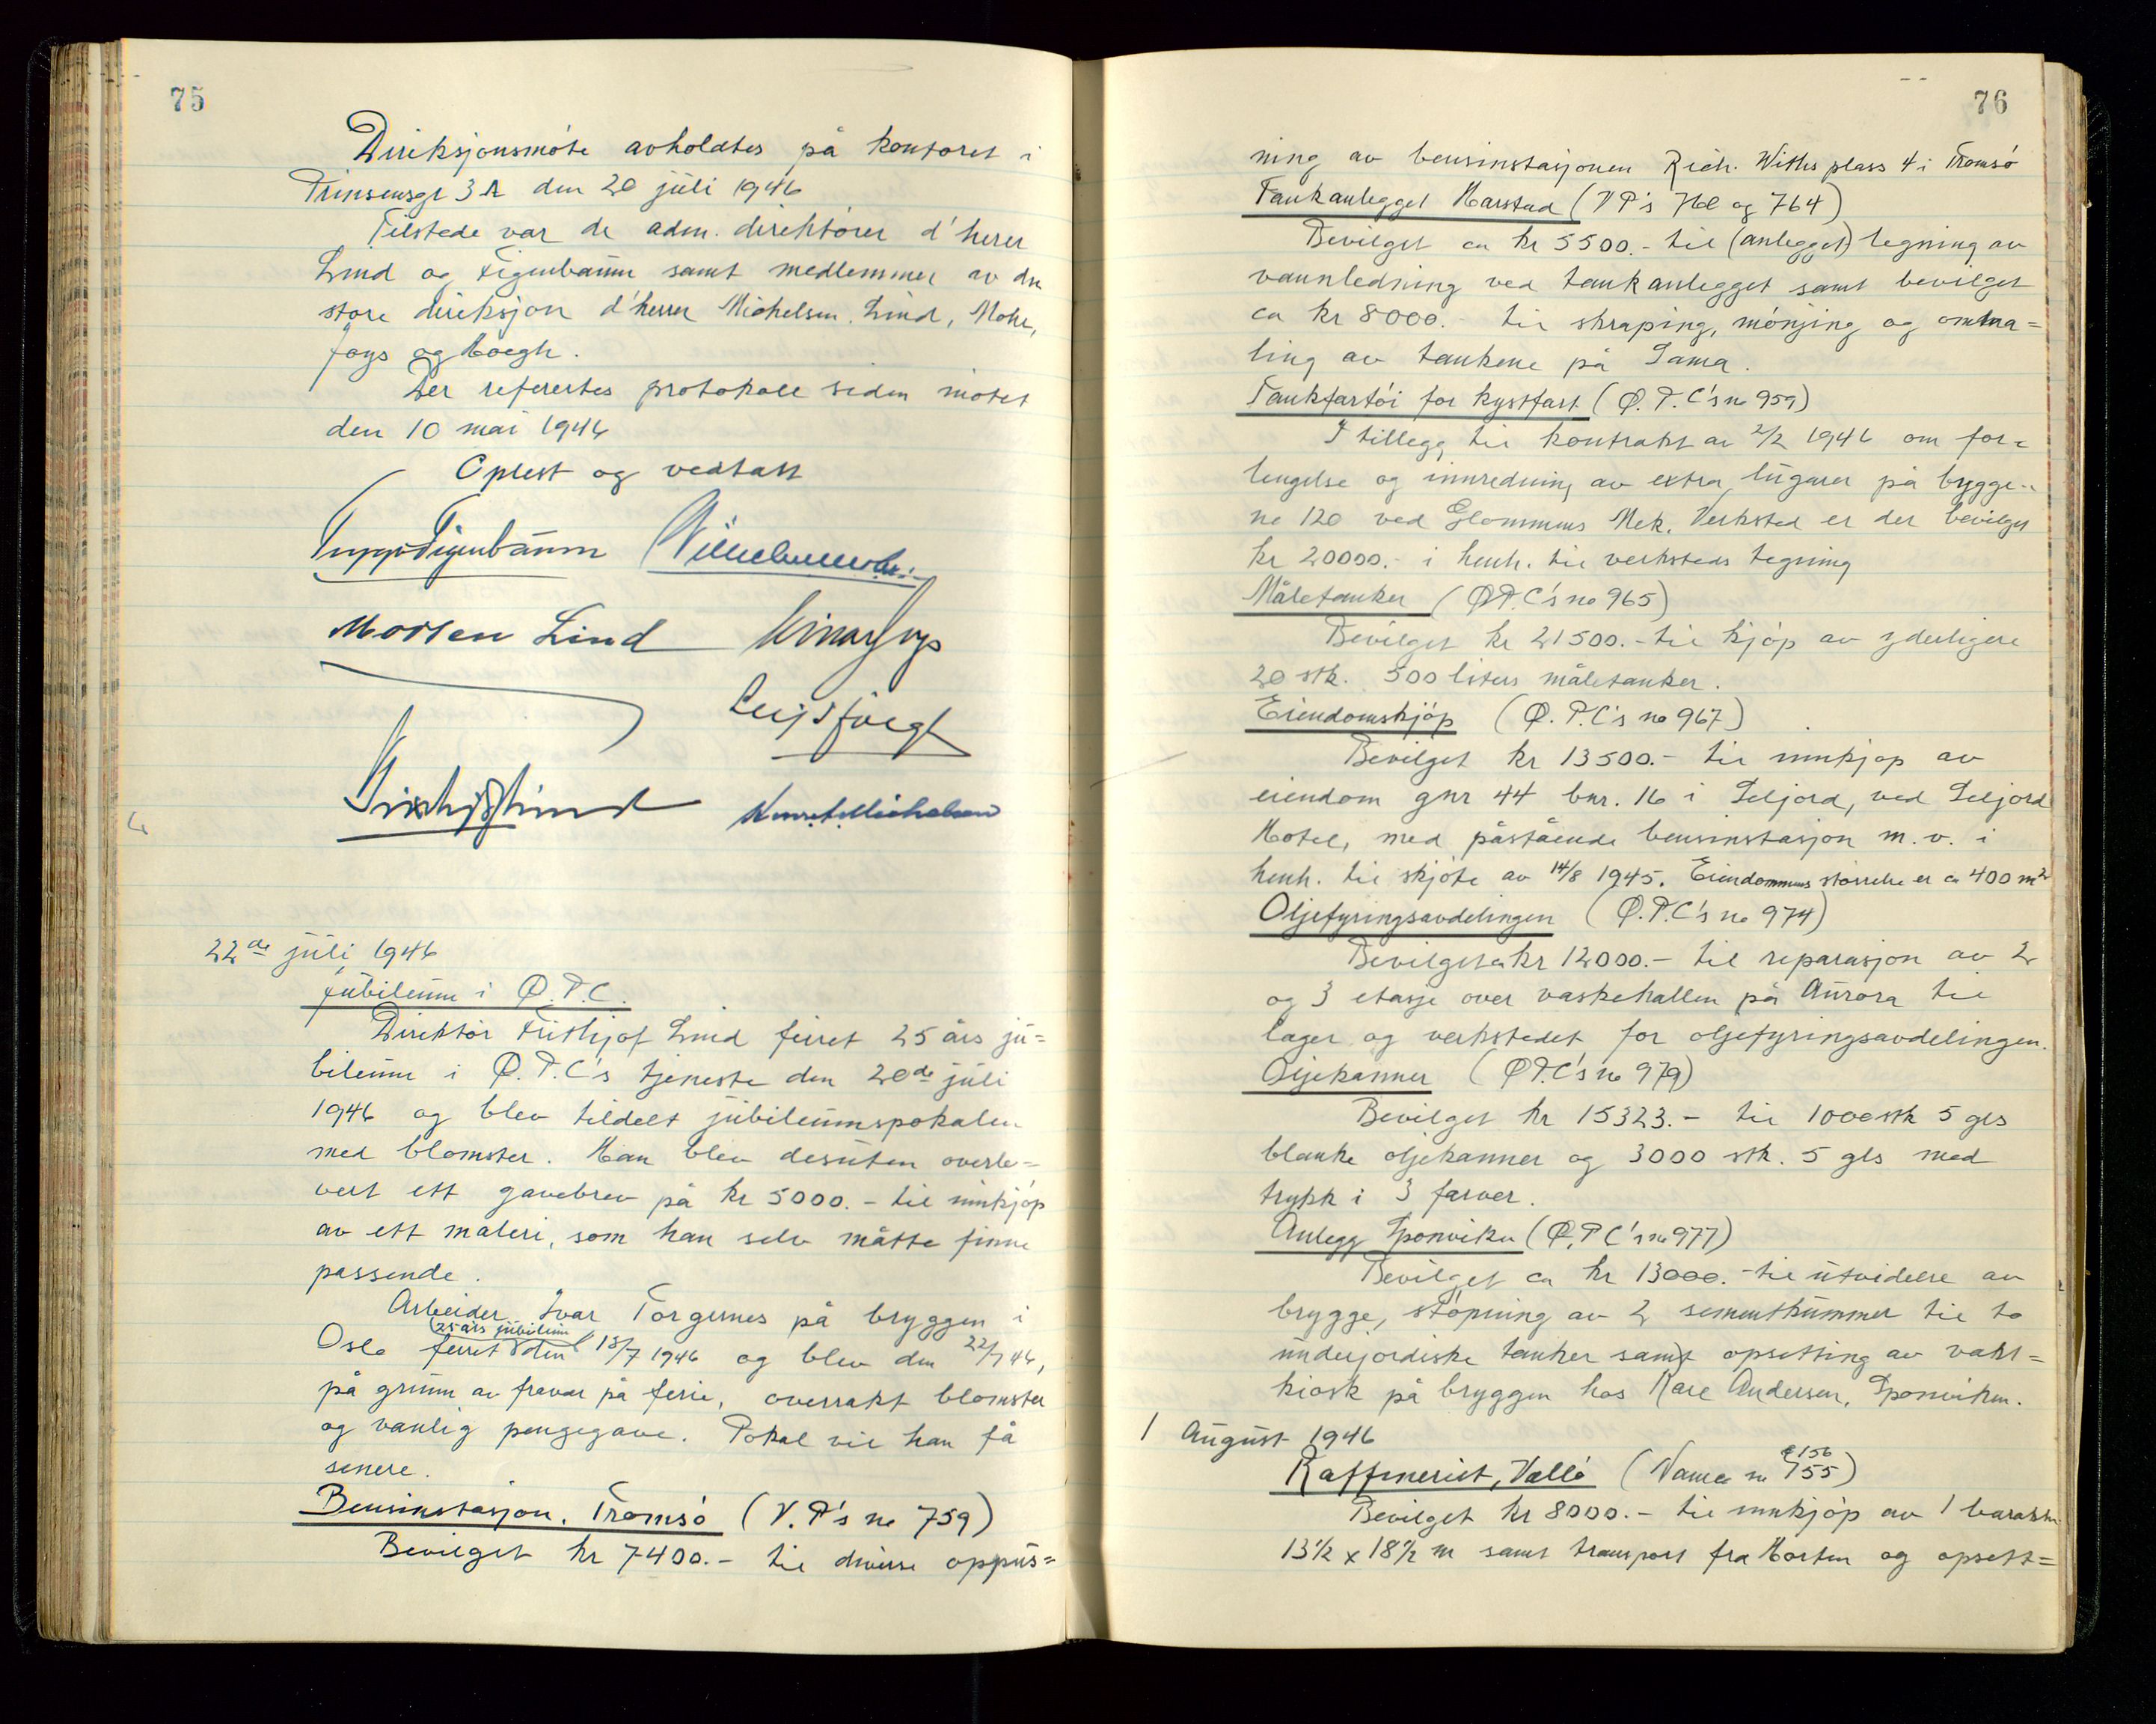 75
Direksjonsmöte avholdtes på kontoret i
Prinsensgt 3A den 20 juli 1946
Tilstede var de adm. direktörer d'herrer
Lind og Figenbaum samt medlemmer av den
store direksjon d'herrer Michelsen, Lind, Mohr,
Foys og Hoegh.
Der refertes protokoll siden mötet
den 10 mai 1946
Oplest og vedtatt
Figenbaum
Morten Lind
Einar Foys
Leif Hoegh
Fridthjof Lind
Michelsen
22de juli 1946
Jubileum i Ö.P.C.
Direktör Frithjof Lind feiret 25 års ju=
bileum i Ö.P.C's tjeneste den 20de juli
1946 og blev tildelt jubileumspokalen
med blomster. Han blev desuten overle=
vert ett gavebrev på kr 5000.- til innkjöp
av ett maleri, som han selv måtte finne
passende.
Arbeider Ivar Torgernes på bryggen i
Oslo feiret 25 års jubileum den 18/7 1946 og blev den 22/7 46,
på grunn av fravær på ferie, overrakt blomster
og vanlig pengegave. Pokal vil han få
senere.
Bensinstasjon, Tromsö (V.P's no 759)
Bevilget kr 7400.- til diverse oppus=
76
ning av bensinstasjonen Rich. Withs plass 4 i Tromsö
Tankanlegget Harstad (VP's 760 og 764)
Bevilget ca kr 5500.- til (anlegget) legning av
vannledning ved tankanlegget samt bevilget
ca kr 8000.- til skraping, mönjing og omma=
ling av tankene på Sama.
Tankfartöi for kystfart (Ö.P.C's no 959)
I tillegg til kontrakt av 2/2 1946 om for=
lengelse og innredning av extra lugarer på bygge
no 120 ved Glommens Mek. Verksted er der bevilget
kr 20000.- i henh. til verksteds tegning
Måletanker (ÖP.C's no 965)
Bevilget kr 21500.- til kjöp av yderligere
20 stk. 500 liters måletanker.
Eiendomskjöp (Ö.P.C's no 967)
Bevilget kr 13500.- til innkjöp av
eiendom gnr 44 bnr. 16 i Seljord, ved Seljord
Hotel, med påstående bensinstasjon m.v. i
henh. til skjöte av 14/8 1945. Eiendommens störrelse er ca 400 m2
Oljefyringsavdelingen (Ö.P.C's no 974)
Bevilget ca kr 12000.- til reparasjon av 2
og 3 etasje over vaskehallen på Aurora til
lager og verkstedet for oljefyringsavdelingen.
Oljekanner (ÖP.C's no 979)
Bevilget kr 15323.- til 1000 stk 5 gls
blanke oljekanner og 3000 stk. 5 gls med
trykk i 3 farver.
Anlegg Sponviken (Ö.P.C's no 977)
Bevilget ca kr 13000.- til utvidelse av
brygge, stöpning av 2 sementkummer til to
underjordiske tanker samt opsetting av vakt=
kiosk på bryggen hos Kåre Andersen, Sponviken.
1 August 1946
Raffineriet, Vallö (Vamea no 155 & 156)
Bevilget kr 8000.- til innkjöp av 1 barakke
13½ x 18½ m samt transport fra Horten og opsett=